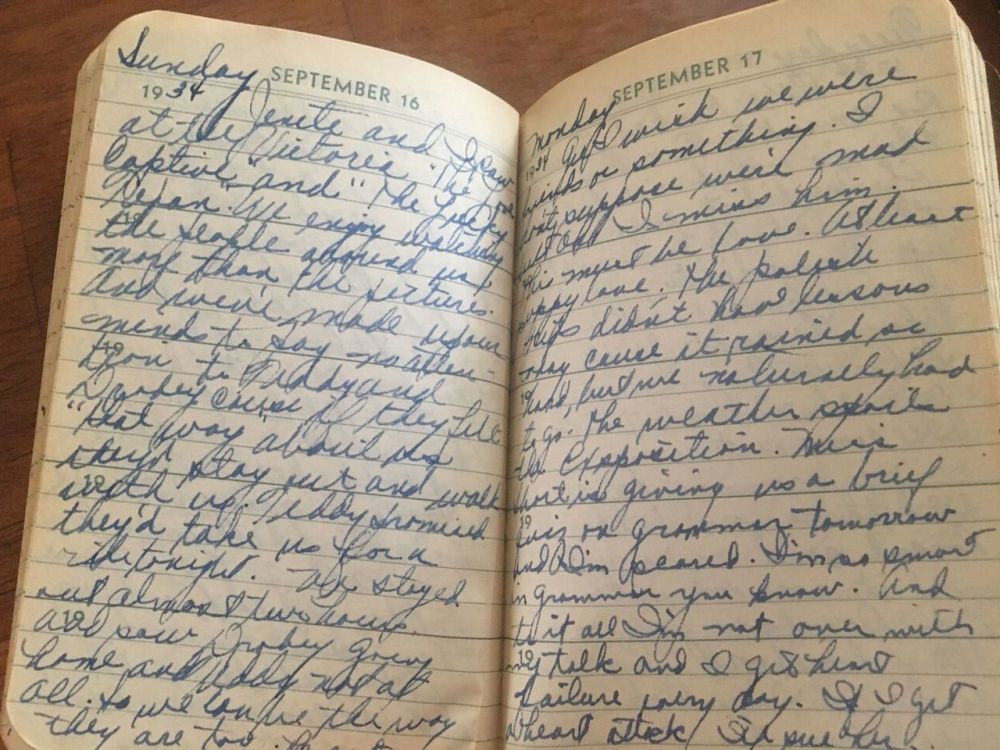 Sunday
SEPTEMBER 16
1934 Jenite and I saw
at the Victoria "The
Captive" and "The
Depan. We enjoy watching
the people around us
more than the pictures.
And we've made up our
minds to say no atten-
tion to Teddy and
Drobey cause if they felt
"that way" about us
they'd stay out and walk
with us. Teddy promised
they'd take us for a
ride tonight. We stayed
out almost two hours
and saw Drobey going
home and Teddy not at
all. So we can be the way
they are too.
SEPTEMBER 17
Monday
1934 Gee I wish we were
friends or something. I
don't suppose we're mad
but oh I miss him.
This must be love. At least
puppy love. The palsie
didn't have lessons
today cause it rained so
hard, but we naturally had
to go. The weather spoils
the Exposition. Miss
is giving us a brief
quiz on grammar tomorrow
and I'm scared. I'm so smart
in grammar you know. And
to it all I'm not over with
my talk and I get heart
failure every day. If I get
a heart attack I'll sue her